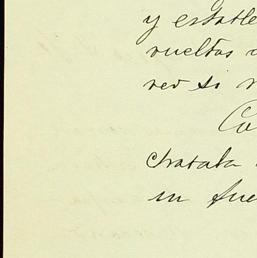 y estable
vueltas
red si
Co
chatala
in fue